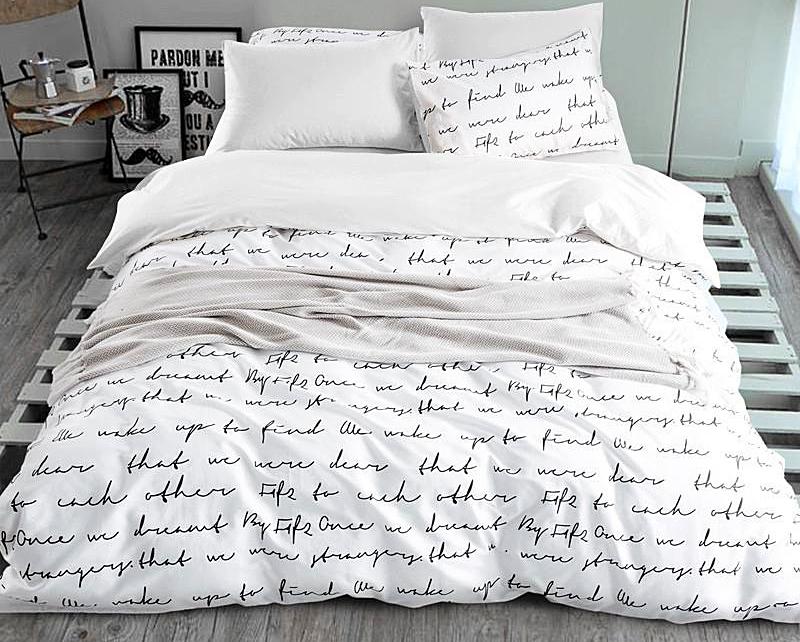 PARDON ME
BUT I
YOU A
By Fifz Once we dreamt
we were strangers. that we
up to find We wake up
we were dear that
Fifz to each othe
We wake up to find We wake up to find We
dear, that we were dea, that we were dear that
Fifz to
other Fifz to each other, Fifz to
Once we dreamt By Fifz Once we dreamt By Fifz Once we dre
strangers. that we were strangers. that we were strangers. that w
We wake up to find We wake up to find We wake up to
dear that we were dear that we were dear that we
to each other Fifz to each other Fifz to each other
Once we dreamt By Fifz Once we dreamt By Fifz Once we dreamt
strangers. that we were strangers. that w. were strangers. that we
We wake up to find We wake up to find We wake up